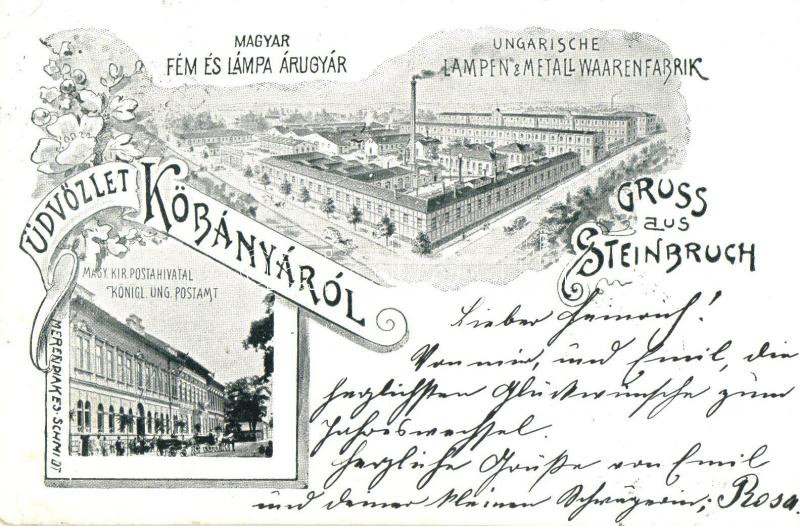 MAGYAR
FÉM ÉS LÁMPA ÁRUGYÁR
UNGARISCHE
LAMPEN & METALL WAARENFABRIK
ÜDVÖZLET
KŐBÁNYÁRÓL
GRUSS
aus
STEINBRUCH
MAGY. KIR. POSTAHIVATAL
KÖNIGL. UNG. POSTAMT
SCHMIDT
Lieber Heinrich!
Von mir, und Emil, die
herzlichsten Glückwünsche zum
Jahreswechsel.
Herzliche Grüße von Emil
und deiner kleinen Schwägerin, Rosa.